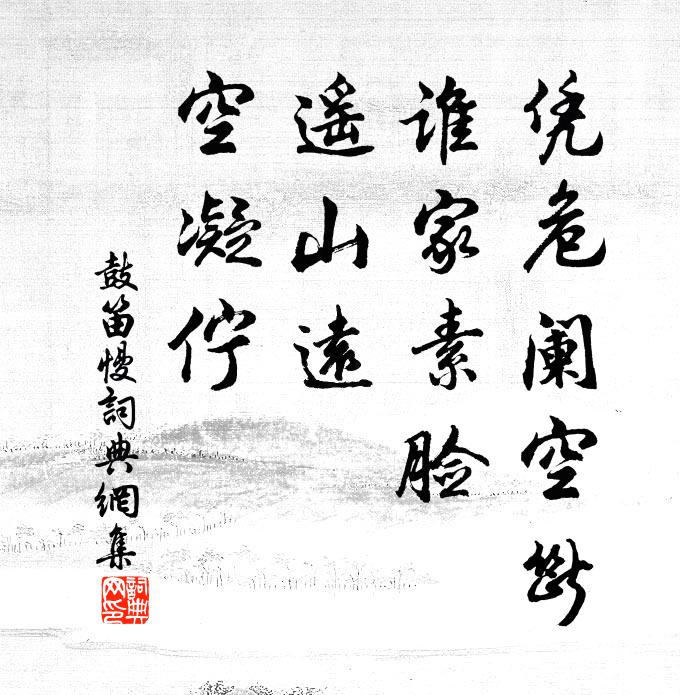 凭危阑空断
谁家素脸
遥山远
空凝伫
鼓笛慢詞典網集
詞典网印